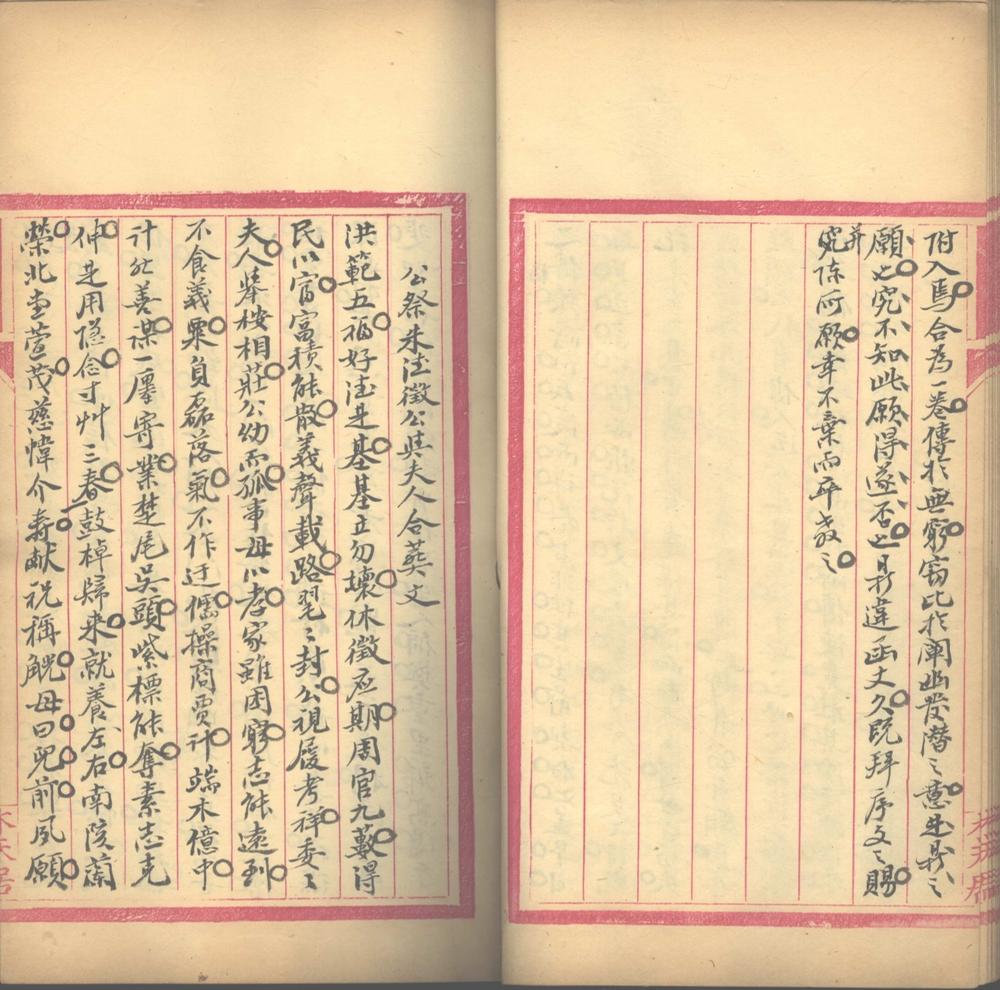 附入焉合為一卷傳於無窮竊比於闡幽發潛之意此某之
願也究不知此願得遂否也某違函丈久既拜序文之賜
并
究陳所願幸不棄而卒教之
公祭朱法徵公與夫人合葬文
洪範五福好德是基基立勿壞休徵應期周官九藪得
民以富富積能散義聲載路翼翼封公視履考祥委委
夫人舉桉相莊公幼而孤事母以孝家雖困窮志能遠到
不食義粟負磊落氣不作迂傴操商賈計端木億中
計然善謀一廛寄業楚尾吳頭紫標能奪素志克
伸是用隱念寸艸三春鼓棹歸來就養左右南陔蘭
榮北堂萱茂慈幃介壽献祝稱觥母曰兒前夙願